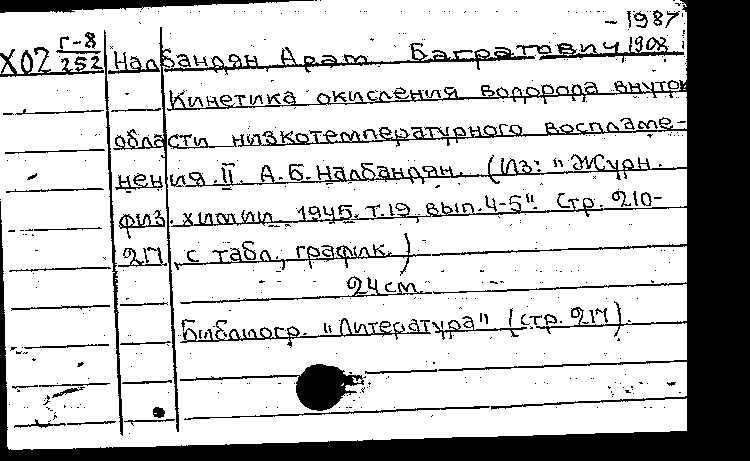 – 1987
X02 Г-8/252 Налбандян, Арат Багратович, 1908
Кинетика окисления водорода внутри
области низкотемпературного воспламе-
нения. II. А.Б. Налбандян. (Из: "Журн.
физ. химии. 1945. т.19, вып.4-5". Стр. 210-
217, с табл., графiк.)
24 см.
Библиогр. "Литература" (стр. 217).